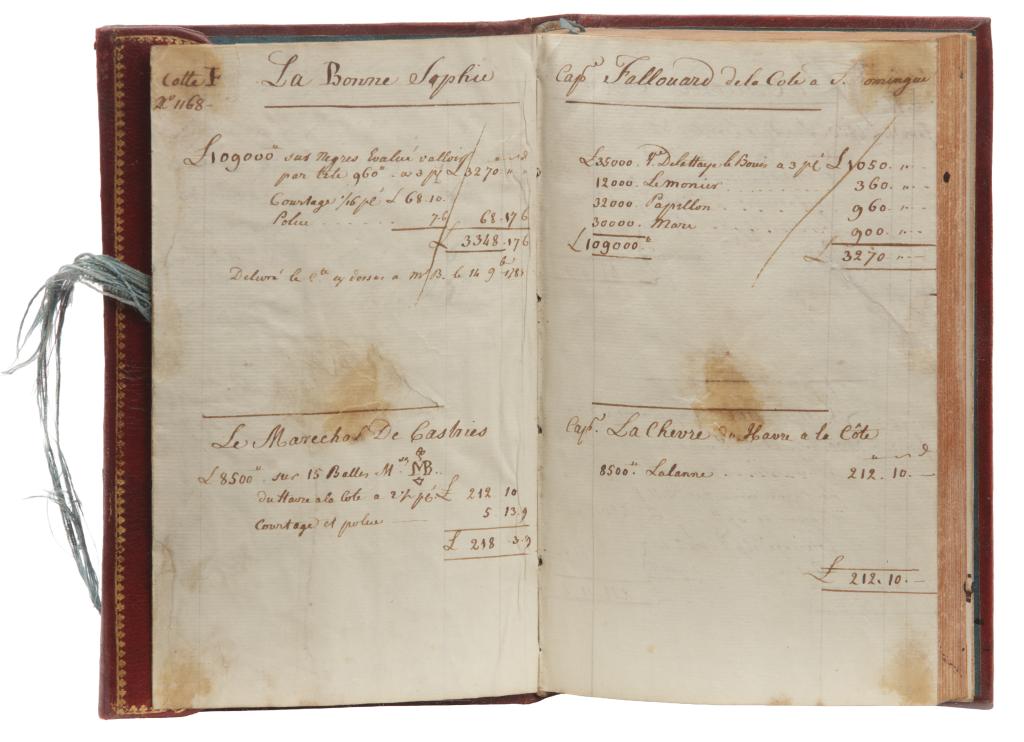 Cotte 1ere
No 1168
La Bonne Sophie
£109000tt sur Negres Evalué
par tete 960tt a 3 p% £ 3270 " "
Courtage 1/16 p% £ 68.10.
Police . . . . 7.6 68.17 6
£ 3348.17 6
Delivré le 14 9b 178
Le Marechal De Castries
£8500tt sur 15 Balles Mses MB
du Havre a la Cote a 2 1/2 p% £ 212 10
Courtage et police 5 13.9
£ 218 3.9
Cape Fallouard de la Cote a St. Domingue
£35000. Ve Delahaye le Bouis a 3 p% £1050. " -
12000. Lemonier . . . . . . 360. " -
32000. Papillon . . . . . 960. " -
30000. Mare . . . . . 900. " -
£109000tt
£ 3270 " -
Cape. La Chevre du Havre a la Côte
8500tt. Lalanne . . . . . . . 212. 10. -
£ 212. 10. -